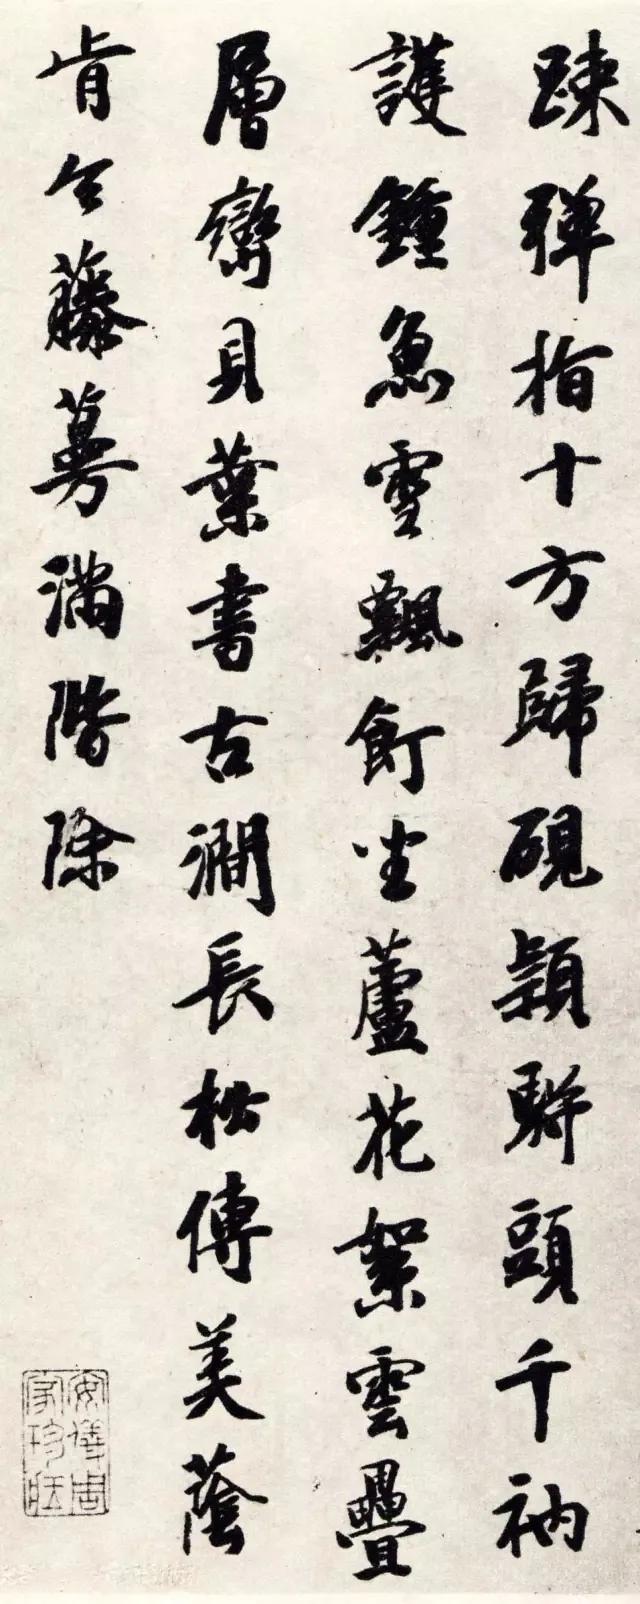 踈弾指十方歸硯頴駢頭千衲
護鍾魚雪飄飣坐蘆花絮雲疊
層巒貝葉書古澗長松傳美蔭
肯令藤蔓滿階除
安儀周家珍藏